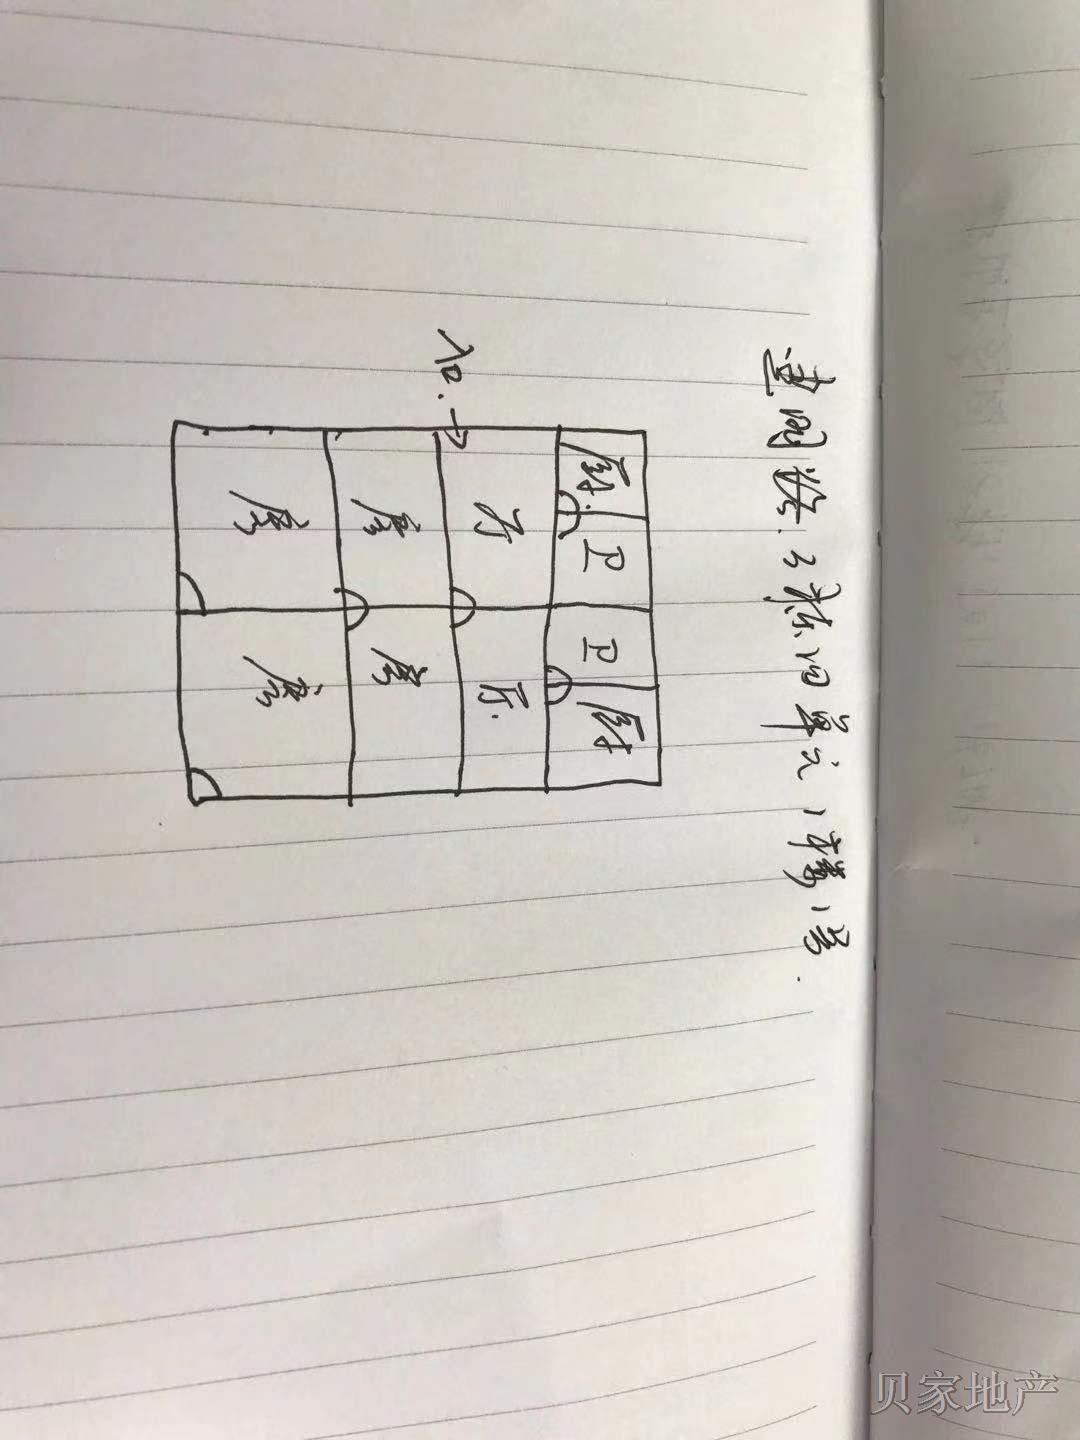 建国路.3栋四单元1楼1号.
入口.
厨.
卫
卫
厨
厅
厅.
房
房
房
房
贝家地产